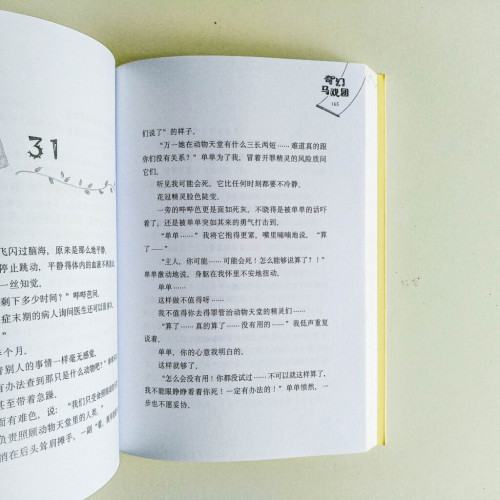 31
飞闪过脑海，原来是那么地平静。
停止跳动，平静得体内的血液不再
一丝知觉。
剩下多少时间？”哔哔芭问。
症末期的病人询问医生还可以
”
个月。
别人的事情一样毫无感觉。
有办法查到那只是什么动物吧？”
甚至带着急躁。
面有难色，说：“我们只受
负责照顾动物天堂里的人类。”
消在后头耸肩摊手，一副“
奇幻
马戏团
165
们说了”的样子。
“万一她在动物天堂有什么三长两短……难道真的跟
你们没有关系？”单单为了我，冒着开罪精灵的风险质问
它们。
听见我可能会死，它比任何时刻都要不冷静。
花冠精灵脸色陡变。
一旁的哔哔芭更是面如死灰，不晓得是被单单的话吓
着了，还是被单单突如其来的勇气打击到。
“单单……”我将它抱得更紧，嘴里喃喃地说，“算
了——”
“主人，你可能……可能会死！怎么能够说算了？！”
单单激动地说，身躯在我怀里不安地扭动。
单单……
这样做不值得呀……
我不值得你去得罪管治动物天堂的精灵们……
“算了……真的算了……没有用的……”我低声重复
说着。
单单，你的心意我明白的。
这样就够了。
“怎么会没有用！你都没试过……不可以就这样算了，
我不能眼睁睁看着你死！一定有办法的！”单单愤然，一
步也不愿妥协。